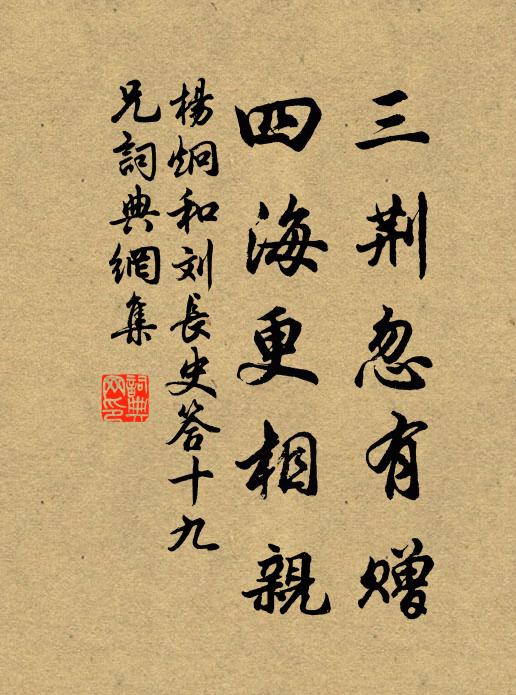 三荆忽有赠
四海更相親
楊炯和刘長史答十九
兄詞典網集
詞典
网印